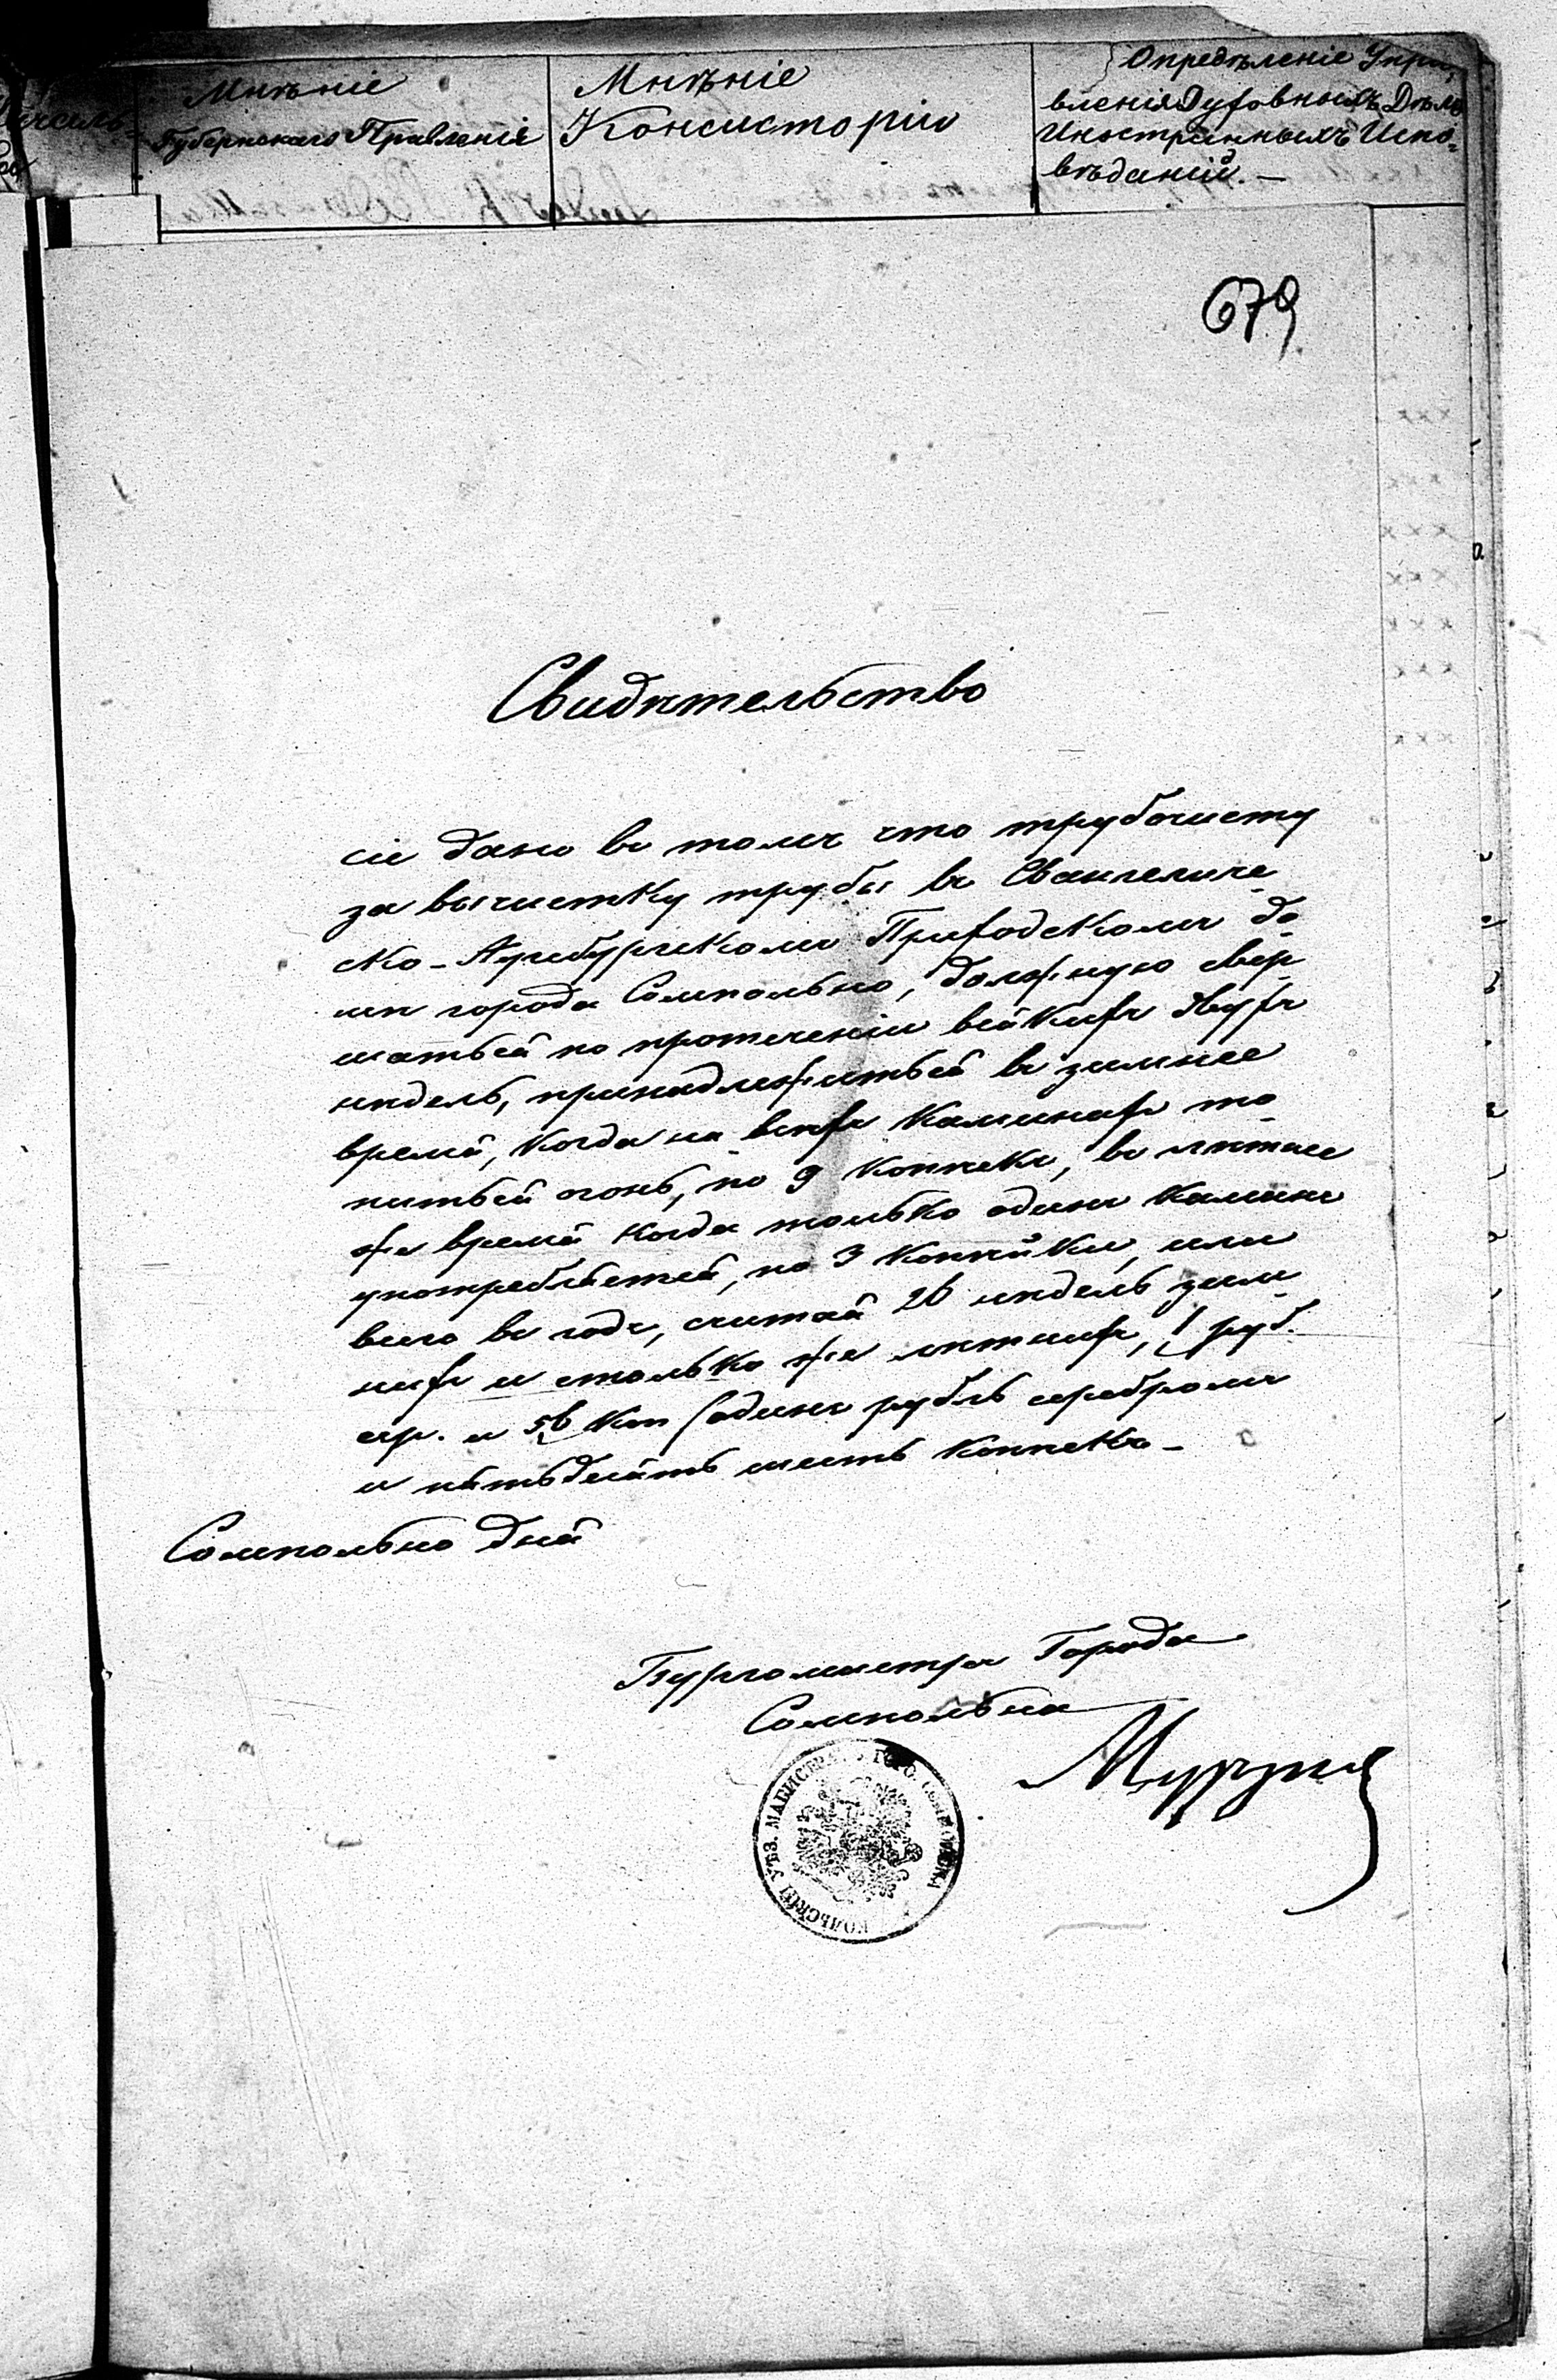 Мнѣніе
Губернскаго Правленія
Мнѣніе
Консисторіи
Опредѣленіе Упра-
вленія Духовныхъ Дѣлъ
Иностранныхъ Испо-
вѣданій.—
679
Свидѣтельство
сіе дано въ томъ что трубочисту
за вычистку трубы въ Евангеличе-
ско-Аугсбургскомъ Приходскомъ до-
мѣ города Сомпольно, должную свер-
шаться по протеченіи всякихъ двухъ
недѣль, принадлежиться въ зимнее
время, когда на всѣхъ каминахъ то-
питься огонь, по 9 копѣекъ, въ лѣтнее
же время когда только одинъ каминъ
употребляется, по 3 копѣйки, или
всего въ годъ, считая 26 недѣль зим-
нихъ и столько же лѣтнихъ, 1 руб.
сер. и 56 коп (одинъ рубль серебромъ
и пятьдесятъ шесть копѣекъ-
Сомпольно дня
Бургомистръ Города
Сомпольна
КОЛЬСКІЙ УѢЗ. МАГИСТРАТЪ ГОРО.